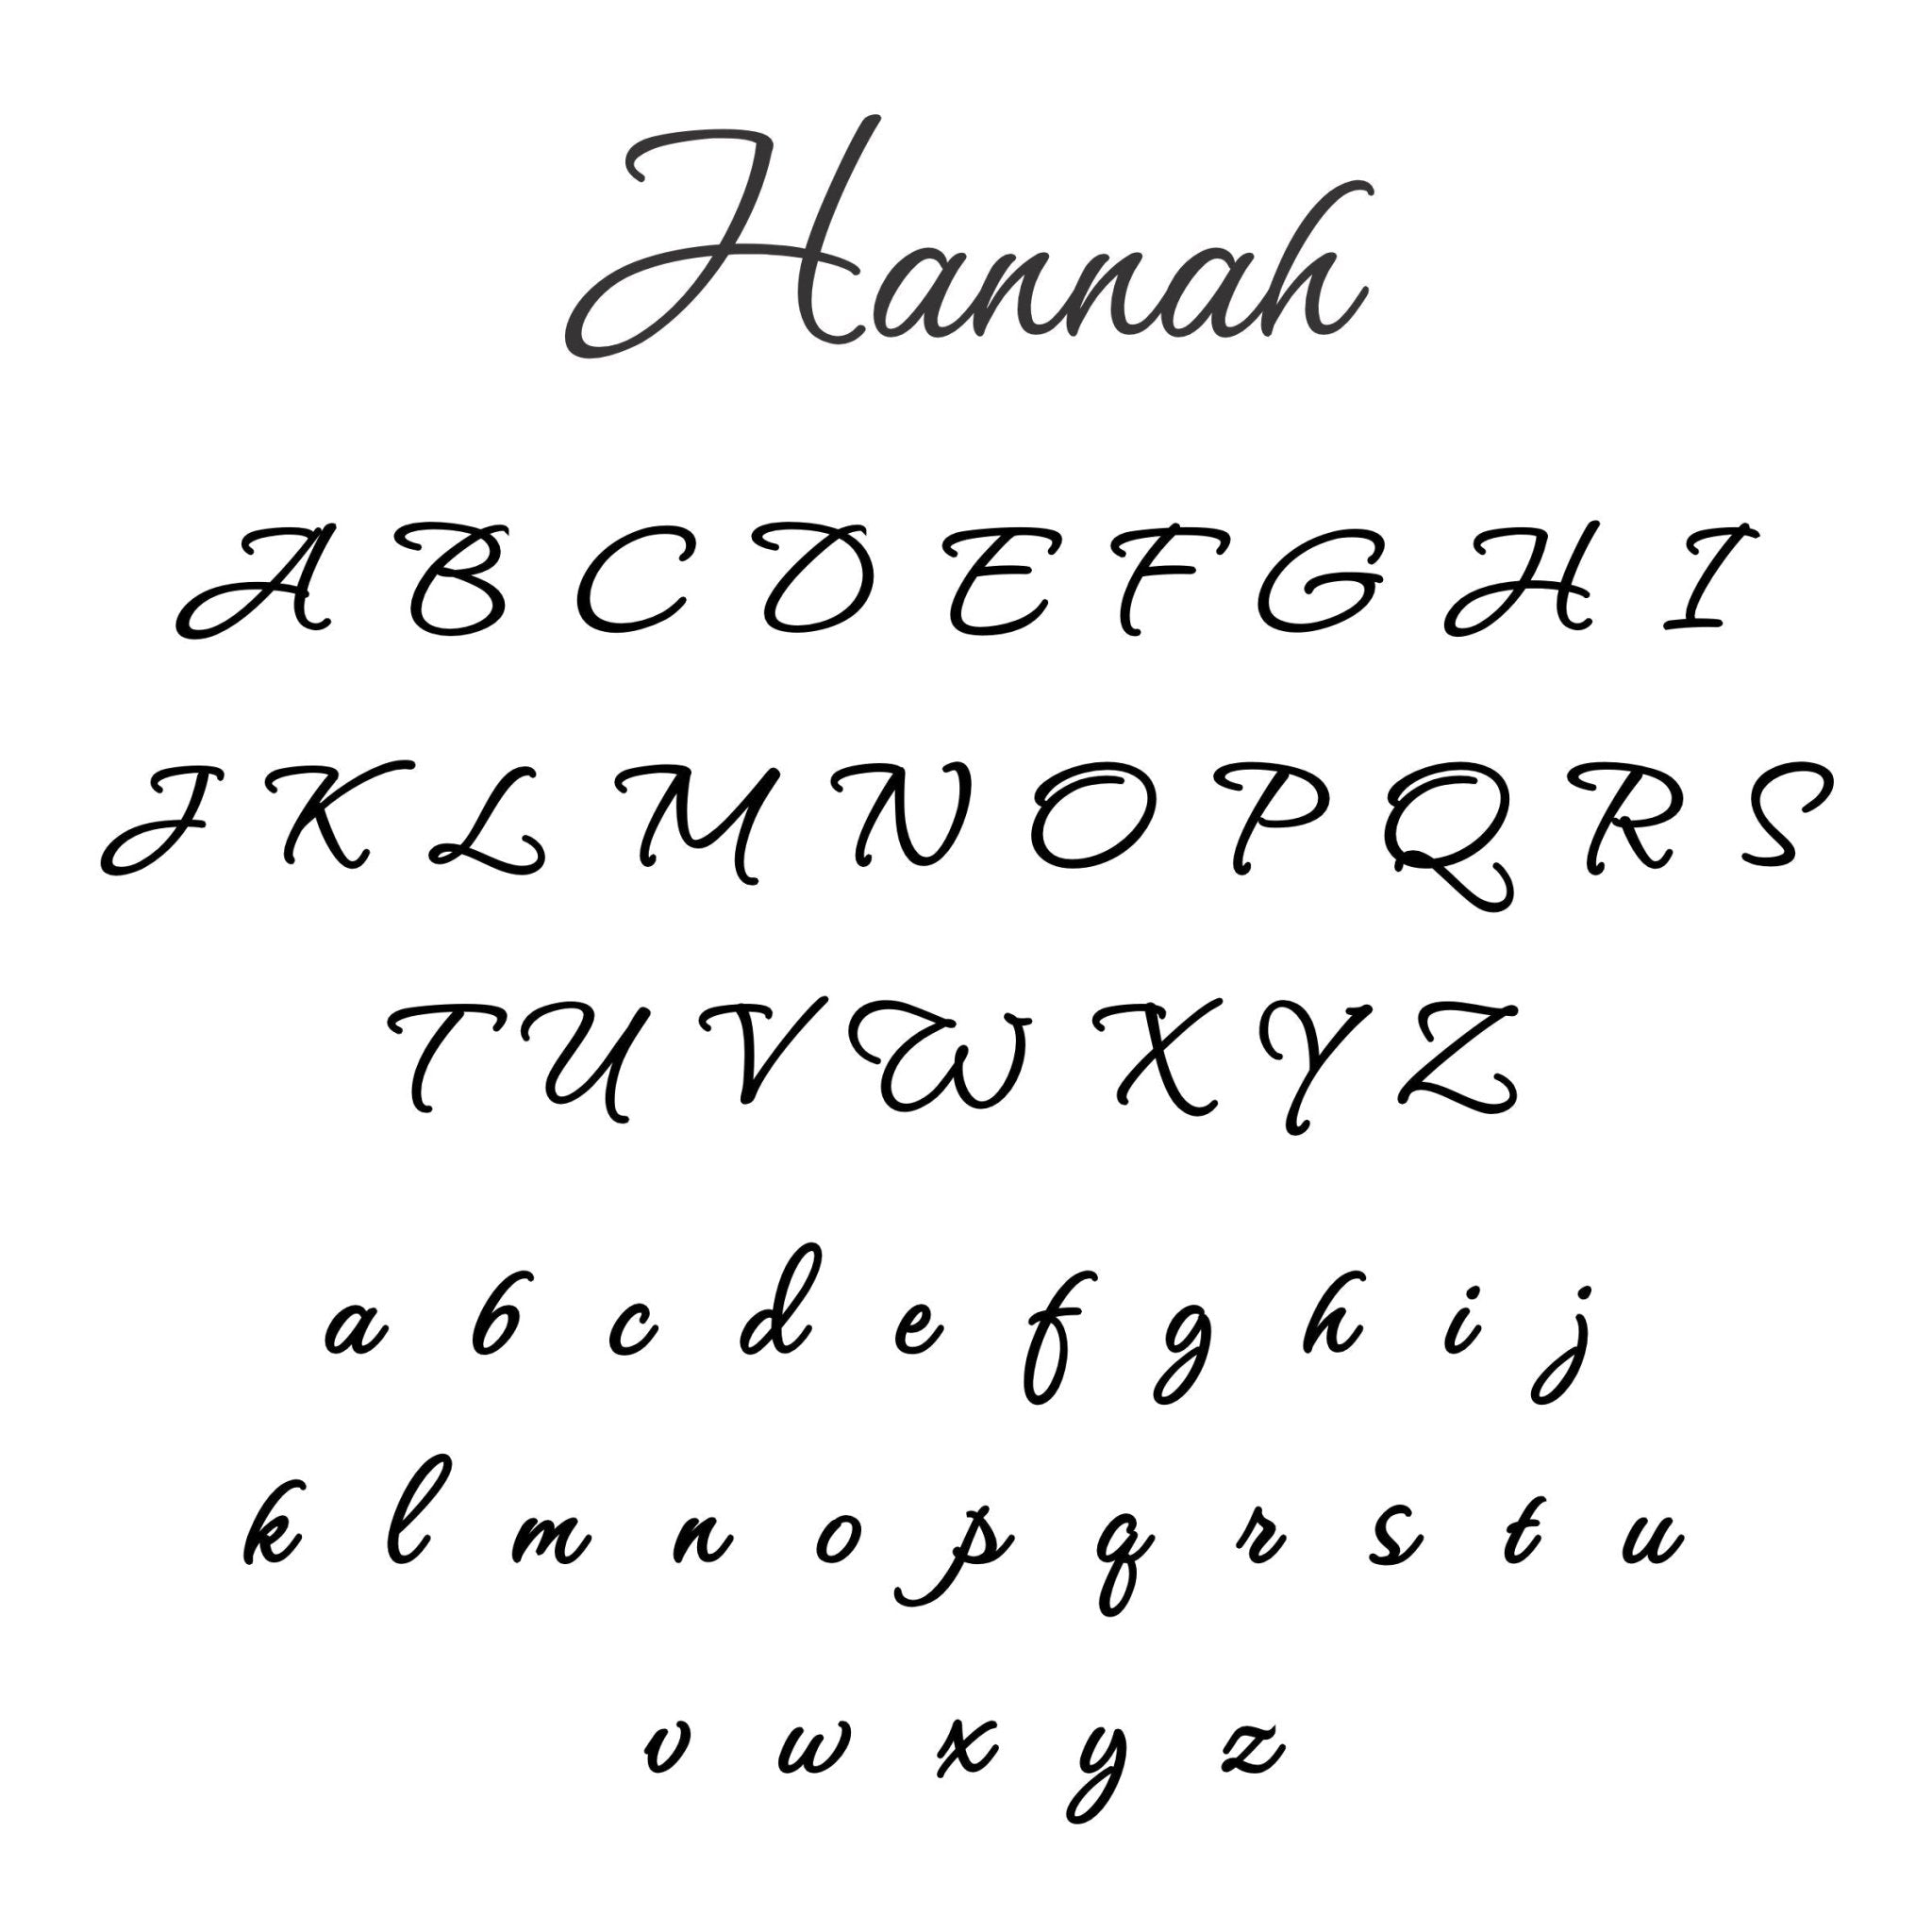 Hannah
A B C D E F G H I
J K L M N O P Q R S
T U V W X Y Z
a b c d e f g h i j
k l m n o p q r s t u
v w x y z